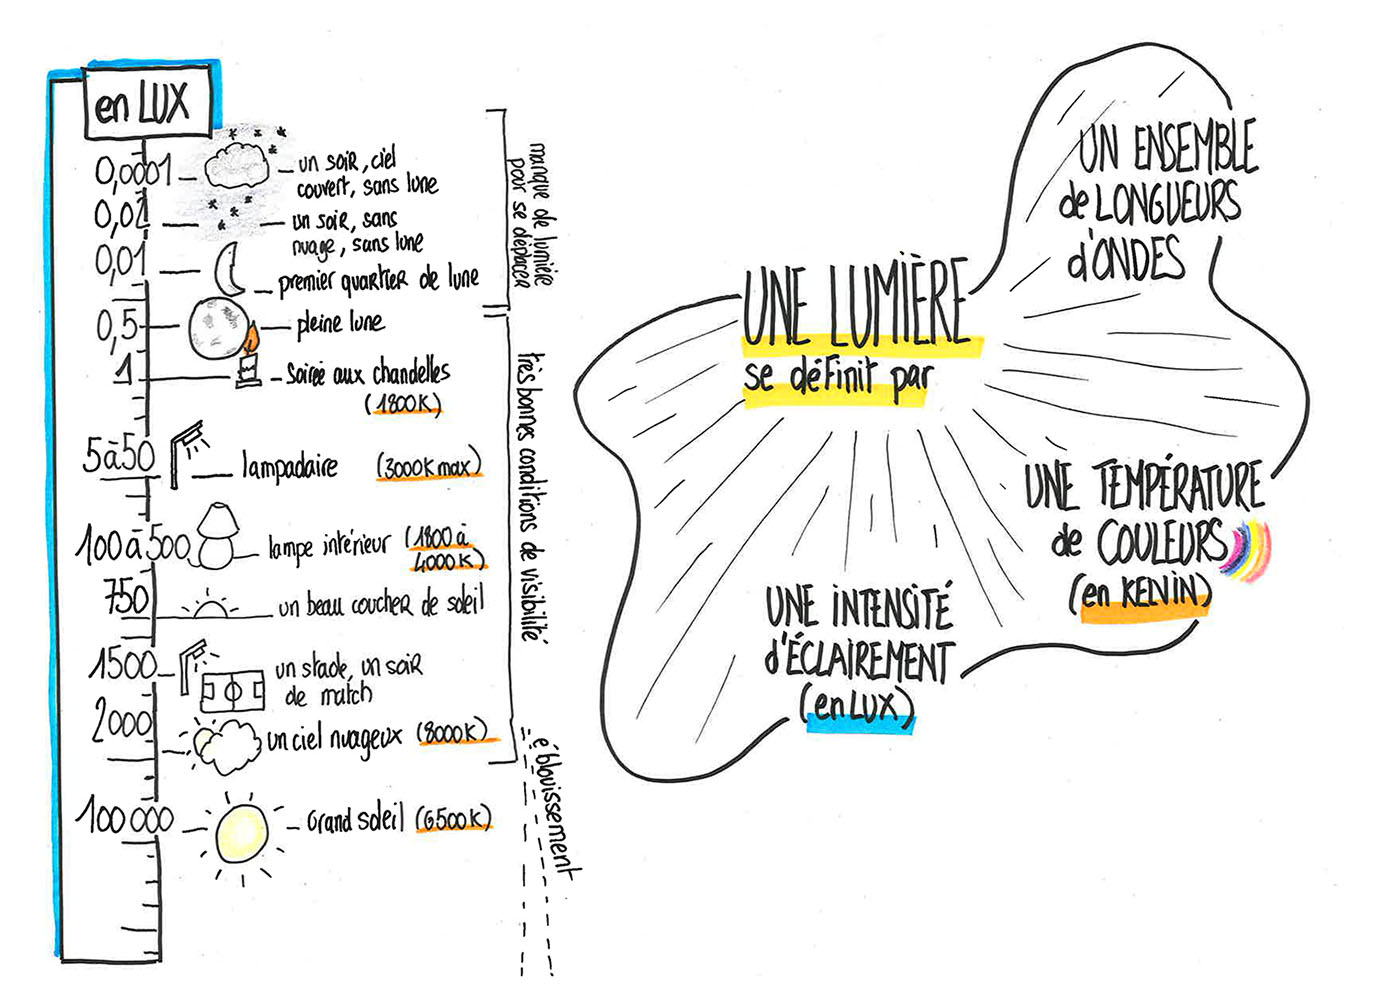 en LUX
0,0001
un soir, ciel
couvert, sans lune
0,02
un soir, sans
nuage, sans lune
0,01
premier quartier de lune
0,5
pleine lune
1
Soirée aux chandelles
(1800K)
5 à 50
lampadaire (3000K max)
100 à 500
lampe intérieur (1800 à
4000K)
750
un beau coucher de soleil
1500
un stade, un soir
de match
2000
un ciel nuageux (8000K)
100 000
Grand soleil (6500K)
manque de lumière
pour se déplacer
très bonnes conditions de visibilité
éblouissement
UNE LUMIÈRE
se définit par
UN ENSEMBLE
de LONGUEURS
d'ONDES
UNE TEMPÉRATURE
de COULEURS
(en KENIN)
UNE INTENSITÉ
d'ÉCLAIREMENT
(en LUX)